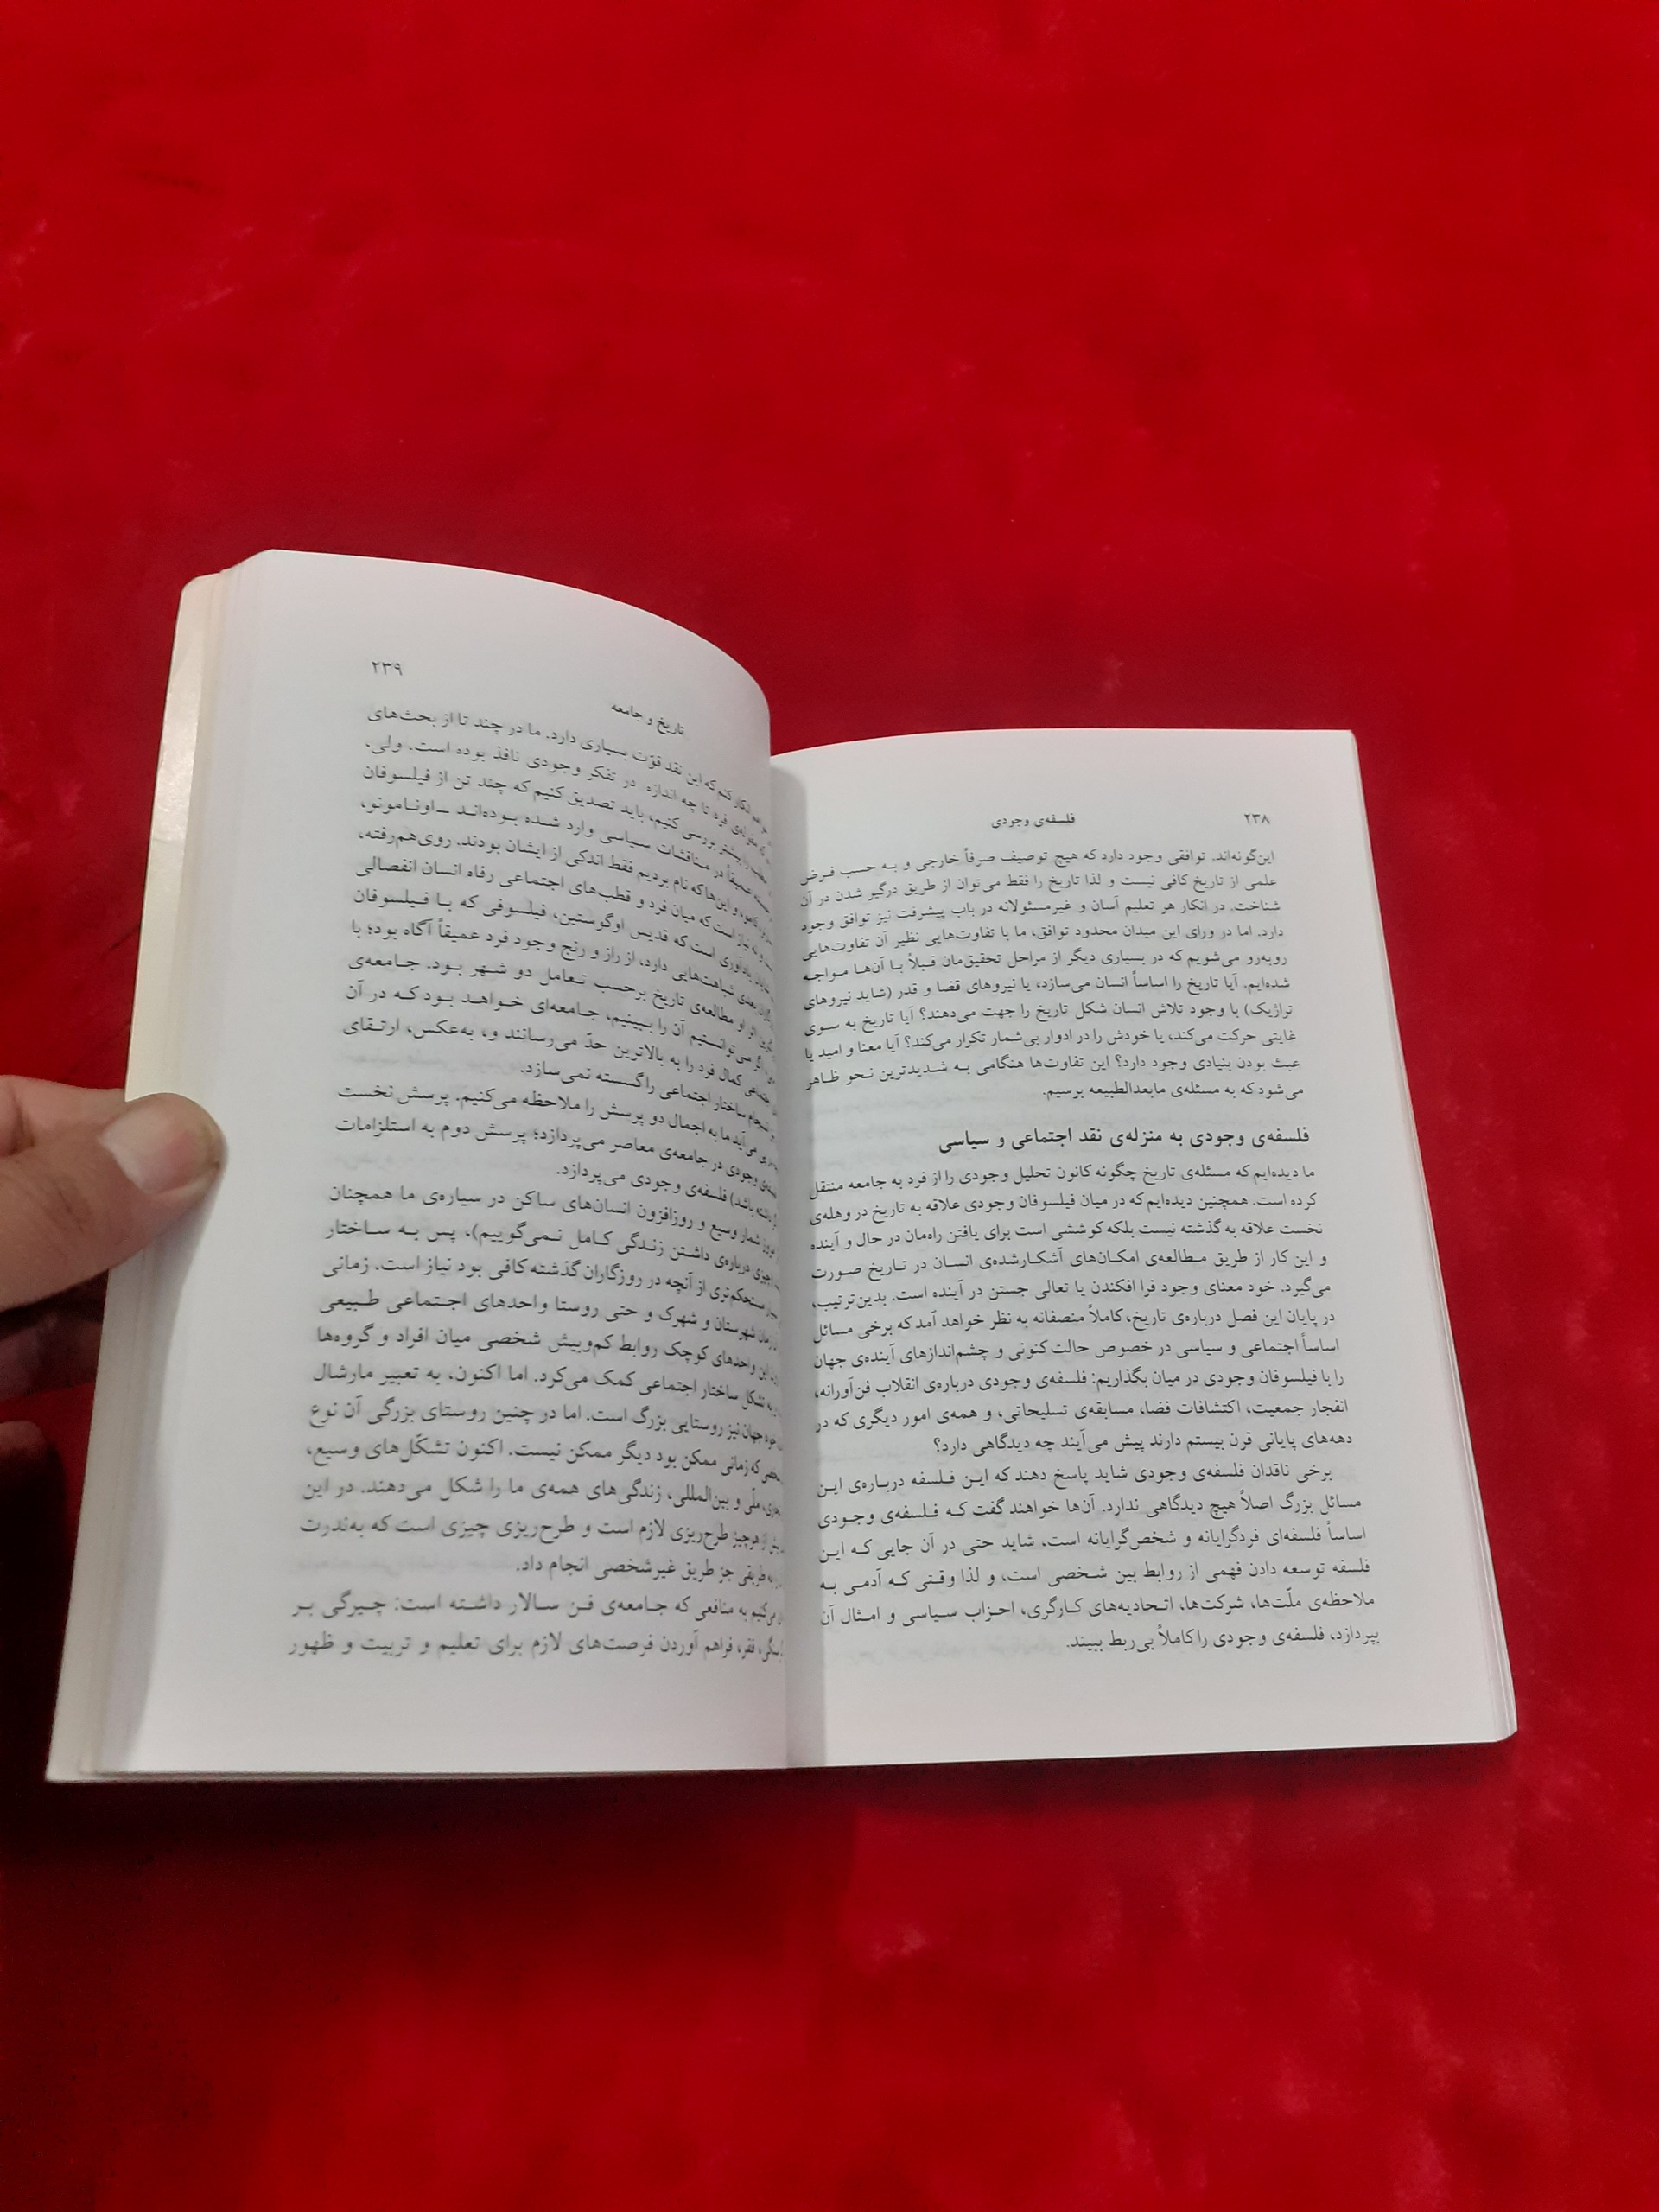 ۲۳۸ فلسفه‌ی وجودی
این‌گونه‌اند. توافقی وجود دارد که هیچ توصیف صرفاً خارجی و بـه حسب فـرض
علمی از تاریخ کافی نیست و لذا تاریخ را فقط می‌توان از طریق درگیر شدن در آن
شناخت. در انکار هر تعلیم آسان و غیرمسئولانه در باب پیشرفت نیز توافق وجود
دارد. اما در ورای این میدان محدود توافق، ما با تفاوت‌هایی نظیر آن تفاوت‌هایی
روبه‌رو می‌شویم که در بسیاری دیگر از مراحل تحقیق‌مان قبلاً بـا آن‌هـا مـواجـه
شده‌ایم. آیا تاریخ را اساساً انسان می‌سازد، یا نیروهای قضا و قدر (شاید نیروهای
تراژیک) با وجود تلاش انسان شکل تاریخ را جهت می‌دهند؟ آیا تاریخ به سوی
غایتی حرکت می‌کند، یا خودش را در ادوار بی‌شمار تکرار می‌کند؟ آیا معنا و امید یا
عبث بودن بنیادی وجود دارد؟ این تفاوت‌ها هنگامی به شدیدترین نحو ظاهر
می‌شود که به مسئله‌ی مابعدالطبیعه برسیم.
فلسفه‌ی وجودی به منزله‌ی نقد اجتماعی و سیاسی
ما دیده‌ایم که مسئله‌ی تاریخ چگونه کانون تحلیل وجودی را از فرد به جامعه منتقل
کرده است. همچنین دیده‌ایم که در میان فیلسوفان وجودی علاقه به تاریخ در وهله‌ی
نخست علاقه به گذشته نیست بلکه کوششی است برای یافتن راه‌مان در حال و آینده
و این کار از طریق مـطالعه‌ی امکـان‌های آشکـارشده‌ی انسـان در تـاریخ صـورت
می‌گیرد. خود معنای وجود فرا افکندن یا تعالی جستن در آینده است. بدین‌ترتیب،
در پایان این فصل درباره‌ی تاریخ، کاملاً منصفانه به نظر خواهد آمد که برخی مسائل
اساساً اجتماعی و سیاسی در خصوص حالت کنونی و چشم‌اندازهای آینده‌ی جهان
را با فیلسوفان وجودی در میان بگذاریم: فلسفه‌ی وجودی درباره‌ی انقلاب فن‌آورانه،
انفجار جمعیت، اکتشافات فضا، مسابقه‌ی تسلیحاتی، و همه‌ی امور دیگری که در
دهه‌های پایانی قرن بیستم دارند پیش می‌آیند چه دیدگاهی دارد؟
برخی ناقدان فلسفه‌ی وجودی شاید پاسخ دهند که ایـن فـلسفه دربـاره‌ی ایـن
مسائل بزرگ اصلاً هیچ دیدگاهی ندارد. آن‌ها خواهند گفت کـه فـلسفه‌ی وجـودی
اساساً فلسفه‌ای فردگرایانه و شخص‌گرایانه است، شاید حتی در آن جایی کـه ایـن
فلسفه توسعه دادن فهمی از روابط بین شـخصی است، و لذا وقـتی کـه آدمـی بـه
ملاحظه‌ی ملّت‌ها، شرکت‌ها، اتـحادیه‌های کـارگری، احـزاب سـیاسی و امـثال آن
بپردازد، فلسفه‌ی وجودی را کاملاً بی‌ربط ببیند.
تاریخ و جامعه ۲۳۹
انکار کنم که این نقد قوّت بسیاری دارد. ما در چند تا از بحث‌های
فرد تا چه اندازه در تفکر وجودی نافذ بوده است. ولی،
بیشتر بررسی کنیم، باید تصدیق کنیم که چند تن از فیلسوفان
عمیقاً در مـناقشات سـیاسی وارد شـده بـوده‌انـد ــ اونـامونو،
و این‌ها که نام بردیم فقط اندکی از ایشان بودند. روی‌هم‌رفته،
نیاز است که میان فرد و قطب‌های اجتماعی رفاه انسان انفصالی
یادآوری است که قدیس اوگوستین، فیلسوفی که بـا فـیلسوفان
بعدی شباهت‌هایی دارد، از راز و رنج وجود فرد عمیقاً آگاه بود؛ با
او مطالعه‌ی تاریخ برحسب تـعامل دو شـهر بـود. جـامعه‌ی
می‌توانستیم آن را بـبینیم، جـامعه‌ای خـواهـد بـود کـه در آن
کمال فرد را به بالاترین حدّ می‌رسانند و، به‌عکس، ارتـقای
ساختار اجتماعی را گسسته نمی‌سازد.
می‌آید ما به اجمال دو پرسش را ملاحظه می‌کنیم. پرسش نخست
وجودی در جامعه‌ی معاصر می‌پردازد؛ پرسش دوم به استلزامات
باشد) فلسفه‌ی وجودی می‌پردازد.
شمار وسیع و روزافزون انسان‌های ساکن در سیاره‌ی ما همچنان
چیزی درباره‌ی داشـتن زنـدگی کـامل نـمی‌گوییم)، پس بـه سـاختار
مستحکم‌تری از آنچه در روزگاران گذشته کافی بود نیاز است. زمانی
شهرستان و شهرک و حتی روستا واحدهای اجـتماعی طـبیعی
این واحدهای کوچک روابط کم‌وبیش شخصی میان افراد و گروه‌ها
به تشکل ساختار اجتماعی کمک می‌کرد. اما اکنون، به تعبیر مارشال
جهان نیز روستایی بزرگ است. اما در چنین روستای بزرگی آن نوع
که زمانی ممکن بود دیگر ممکن نیست. اکنون تشکّل‌های وسیع،
ملّی و بین‌المللی، زندگی‌های همه‌ی ما را شکل می‌دهند. در این
از هرچیز طرح‌ریزی لازم است و طرح‌ریزی چیزی است که به‌ندرت
به طریقی جز طریق غیرشخصی انجام داد.
می‌کنیم به منافعی که جـامعه‌ی فـن سـالار داشـته است: چـیرگی بـر
فقر، فراهم آوردن فرصت‌های لازم برای تعلیم و تربیت و ظهور